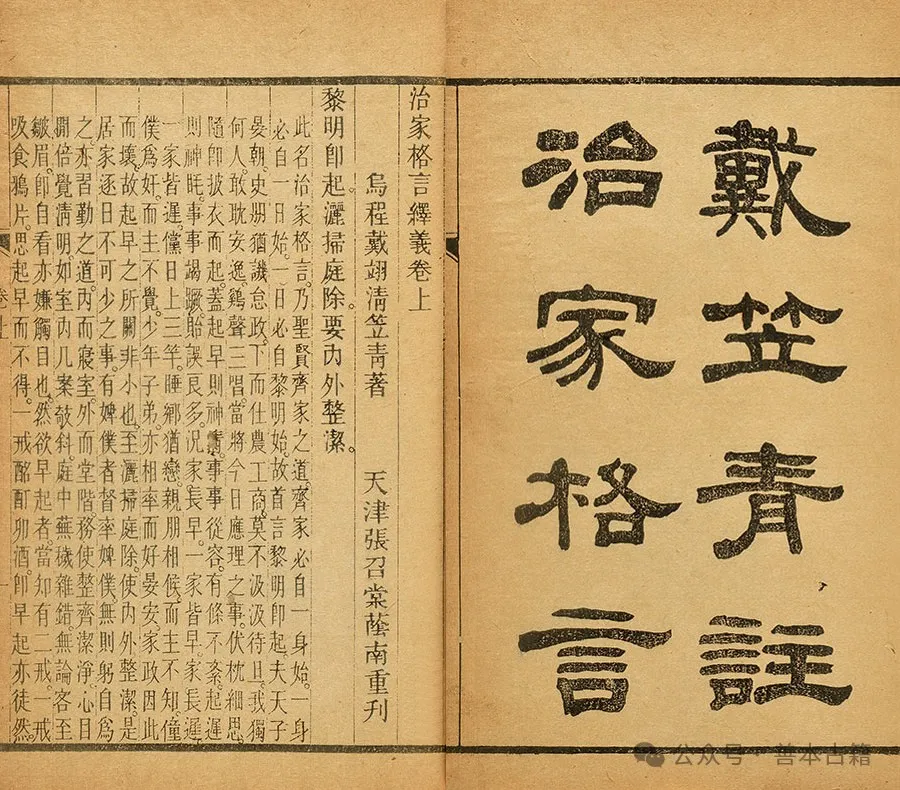 戴笠青註
治家格言
治家格言繹義卷上
烏程戴翊淸笠青著　天津張召棠蔭南重刊
黎明卽起。灑掃庭除。要內外整潔。
此名治家格言。乃聖賢齊家之道。齊家必自一身始。一身
必自一日始。一日必自黎明始。故首言黎明卽起。夫天子
晏朝。史册猶譏怠政。下而仕農工商。莫不汲汲待旦。我獨
何人。敢耽安逸。鷄聲三唱。當將今日應理之事。伏枕細思。
隨卽披衣而起。蓋起早則神淸。事事從容。有條不紊。起遲
則神眊。事事竭蹶。貽誤良多。況家長早。一家皆早。家長遲。
一家皆遲。儻日上三竿。睡鄉猶戀。親朋相候。而主不知。僮
僕爲奸。而主不覺。少年子弟。亦相率而好晏安。家政因此
而壞。故起早之所關非小也。至灑掃庭除。使內外整潔。是
居家逐日不可少之事。有婢僕者督率婢僕。無則躬自爲
之。亦習勤之道。內而寢室。外而堂階。務使整齊潔淨。心目
開倍覺淸明。如室內几案欹斜。庭中蕪穢雜錯。無論客至
皺眉。卽自看亦嫌觸目也。然欲早起者。當知有二戒。一戒
吸食鴉片。思起早而不得。一戒酩酊卯酒。卽早起亦徒然。
卷上
公众号·善本古籍